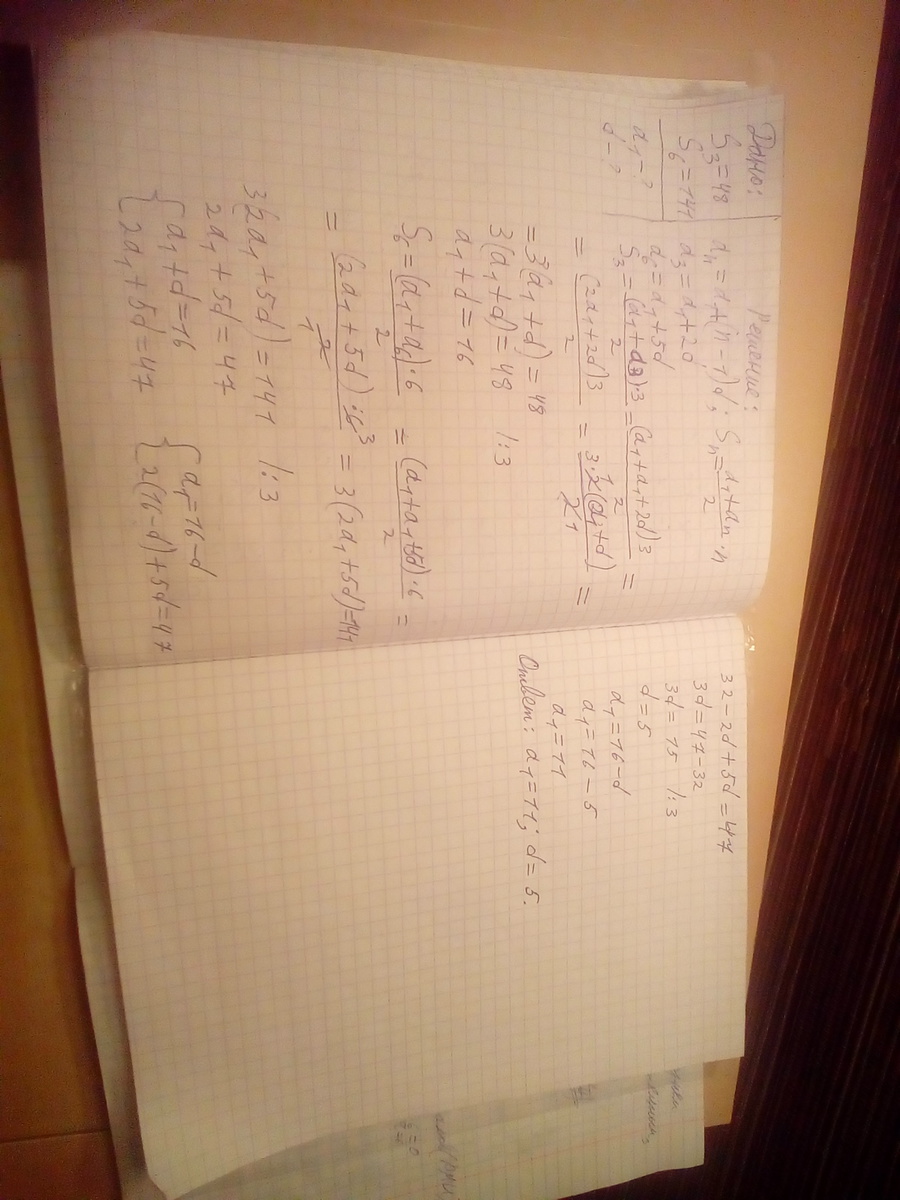 Дано:
S₃ = 48
S₆ = 141
a₁ - ?
d - ?
Решение:
aₙ = a₁+(n-1)d; Sₙ = (a₁+aₙ)/2 · n
a₃ = a₁+2d
a₆ = a₁+5d
S₃ = (a₁+a₃)·3/2 = (a₁+a₁+2d)3/2 =
= (2a₁+2d)3/2 = 3·2(a₁+d)/2 =
= 3(a₁+d) = 48
3(a₁+d) = 48 |:3
a₁+d = 16
S₆ = (a₁+a₆)·6/2 = (a₁+a₁+5d)·6/2 =
= (2a₁+5d)·6³/2₁ = 3(2a₁+5d)=141
3(2a₁+5d) = 141 |:3
2a₁+5d = 47
{a₁+d=16 {a₁=16-d
{2a₁+5d=47 {2(16-d)+5d=47
32-2d+5d=47
3d=47-32
3d=15 |:3
d=5
a₁=16-d
a₁=16-5
a₁=11
Ответ: a₁=11; d=5.